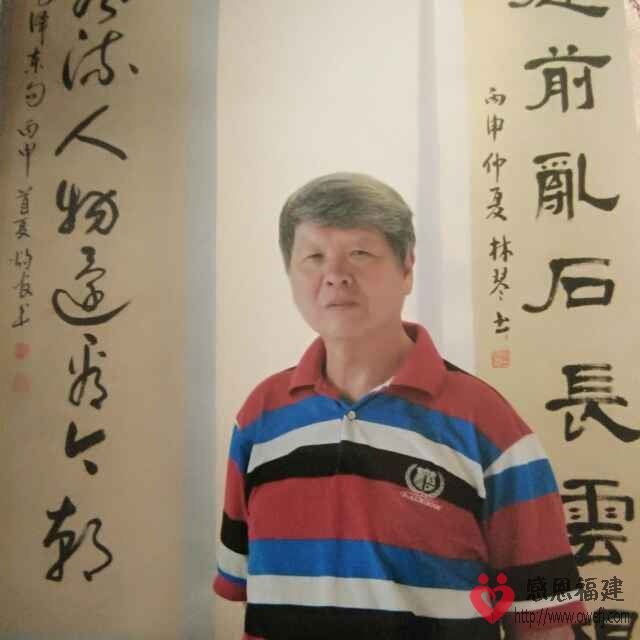 前亂石長雲
丙申仲夏林琴書
流人物還看今朝
澤東句 丙申首夏
感恩福建
http://www.owefj.com